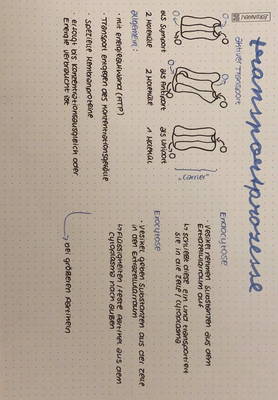 transportprozesse
aktiver Transport
„Carrier“
als Symport
als Antiport
als Uniport
2 Moleküle
2 Moleküle
1 Molekül
allgemein:
· mit Energieaufwand (ATP)
· Transport entgegen des Konzentrationsgefälle
· spezielle Membranproteine
· erfolgt bis Konzentrationsausgleich oder
Energie verbraucht ist
Endocytose
· Vesikel nehmen Substanzen aus dem
Extrazellulärraum auf
↳ schließt diese ein und transportiert
sie in die Zelle / Cytoplasma
Exocytose
· Vesikel geben Substanzen aus der Zelle
in den Extrazellulärraum
↳ Flüssigkeiten / feste Partikel aus dem
Cytoplasma nach außen
→ bei größeren Partikeln